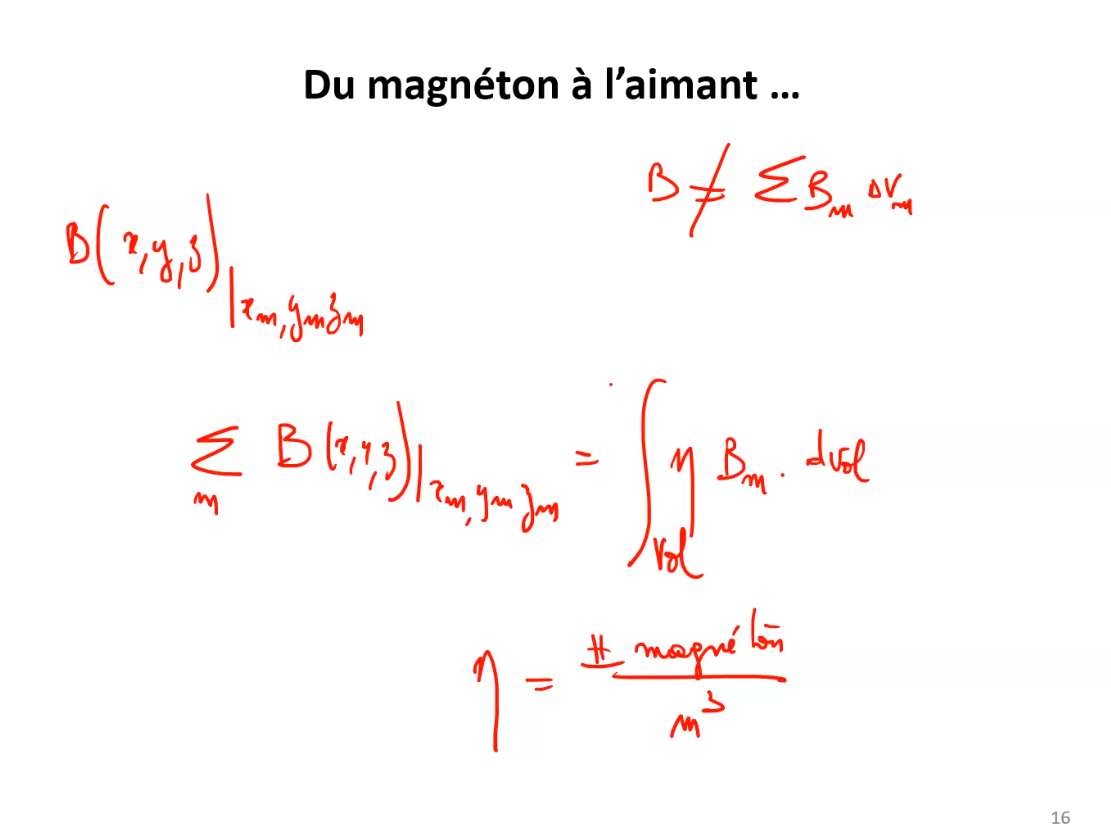 Du magnéton à l’aimant …
B ≠ Σ Bm ΔVm
B(x,y,z)|xm,ymzm
Σm B(x,y,z)|xm,ymzm = ∫Vol η Bm . dvol
η = # magnéton / m³
16